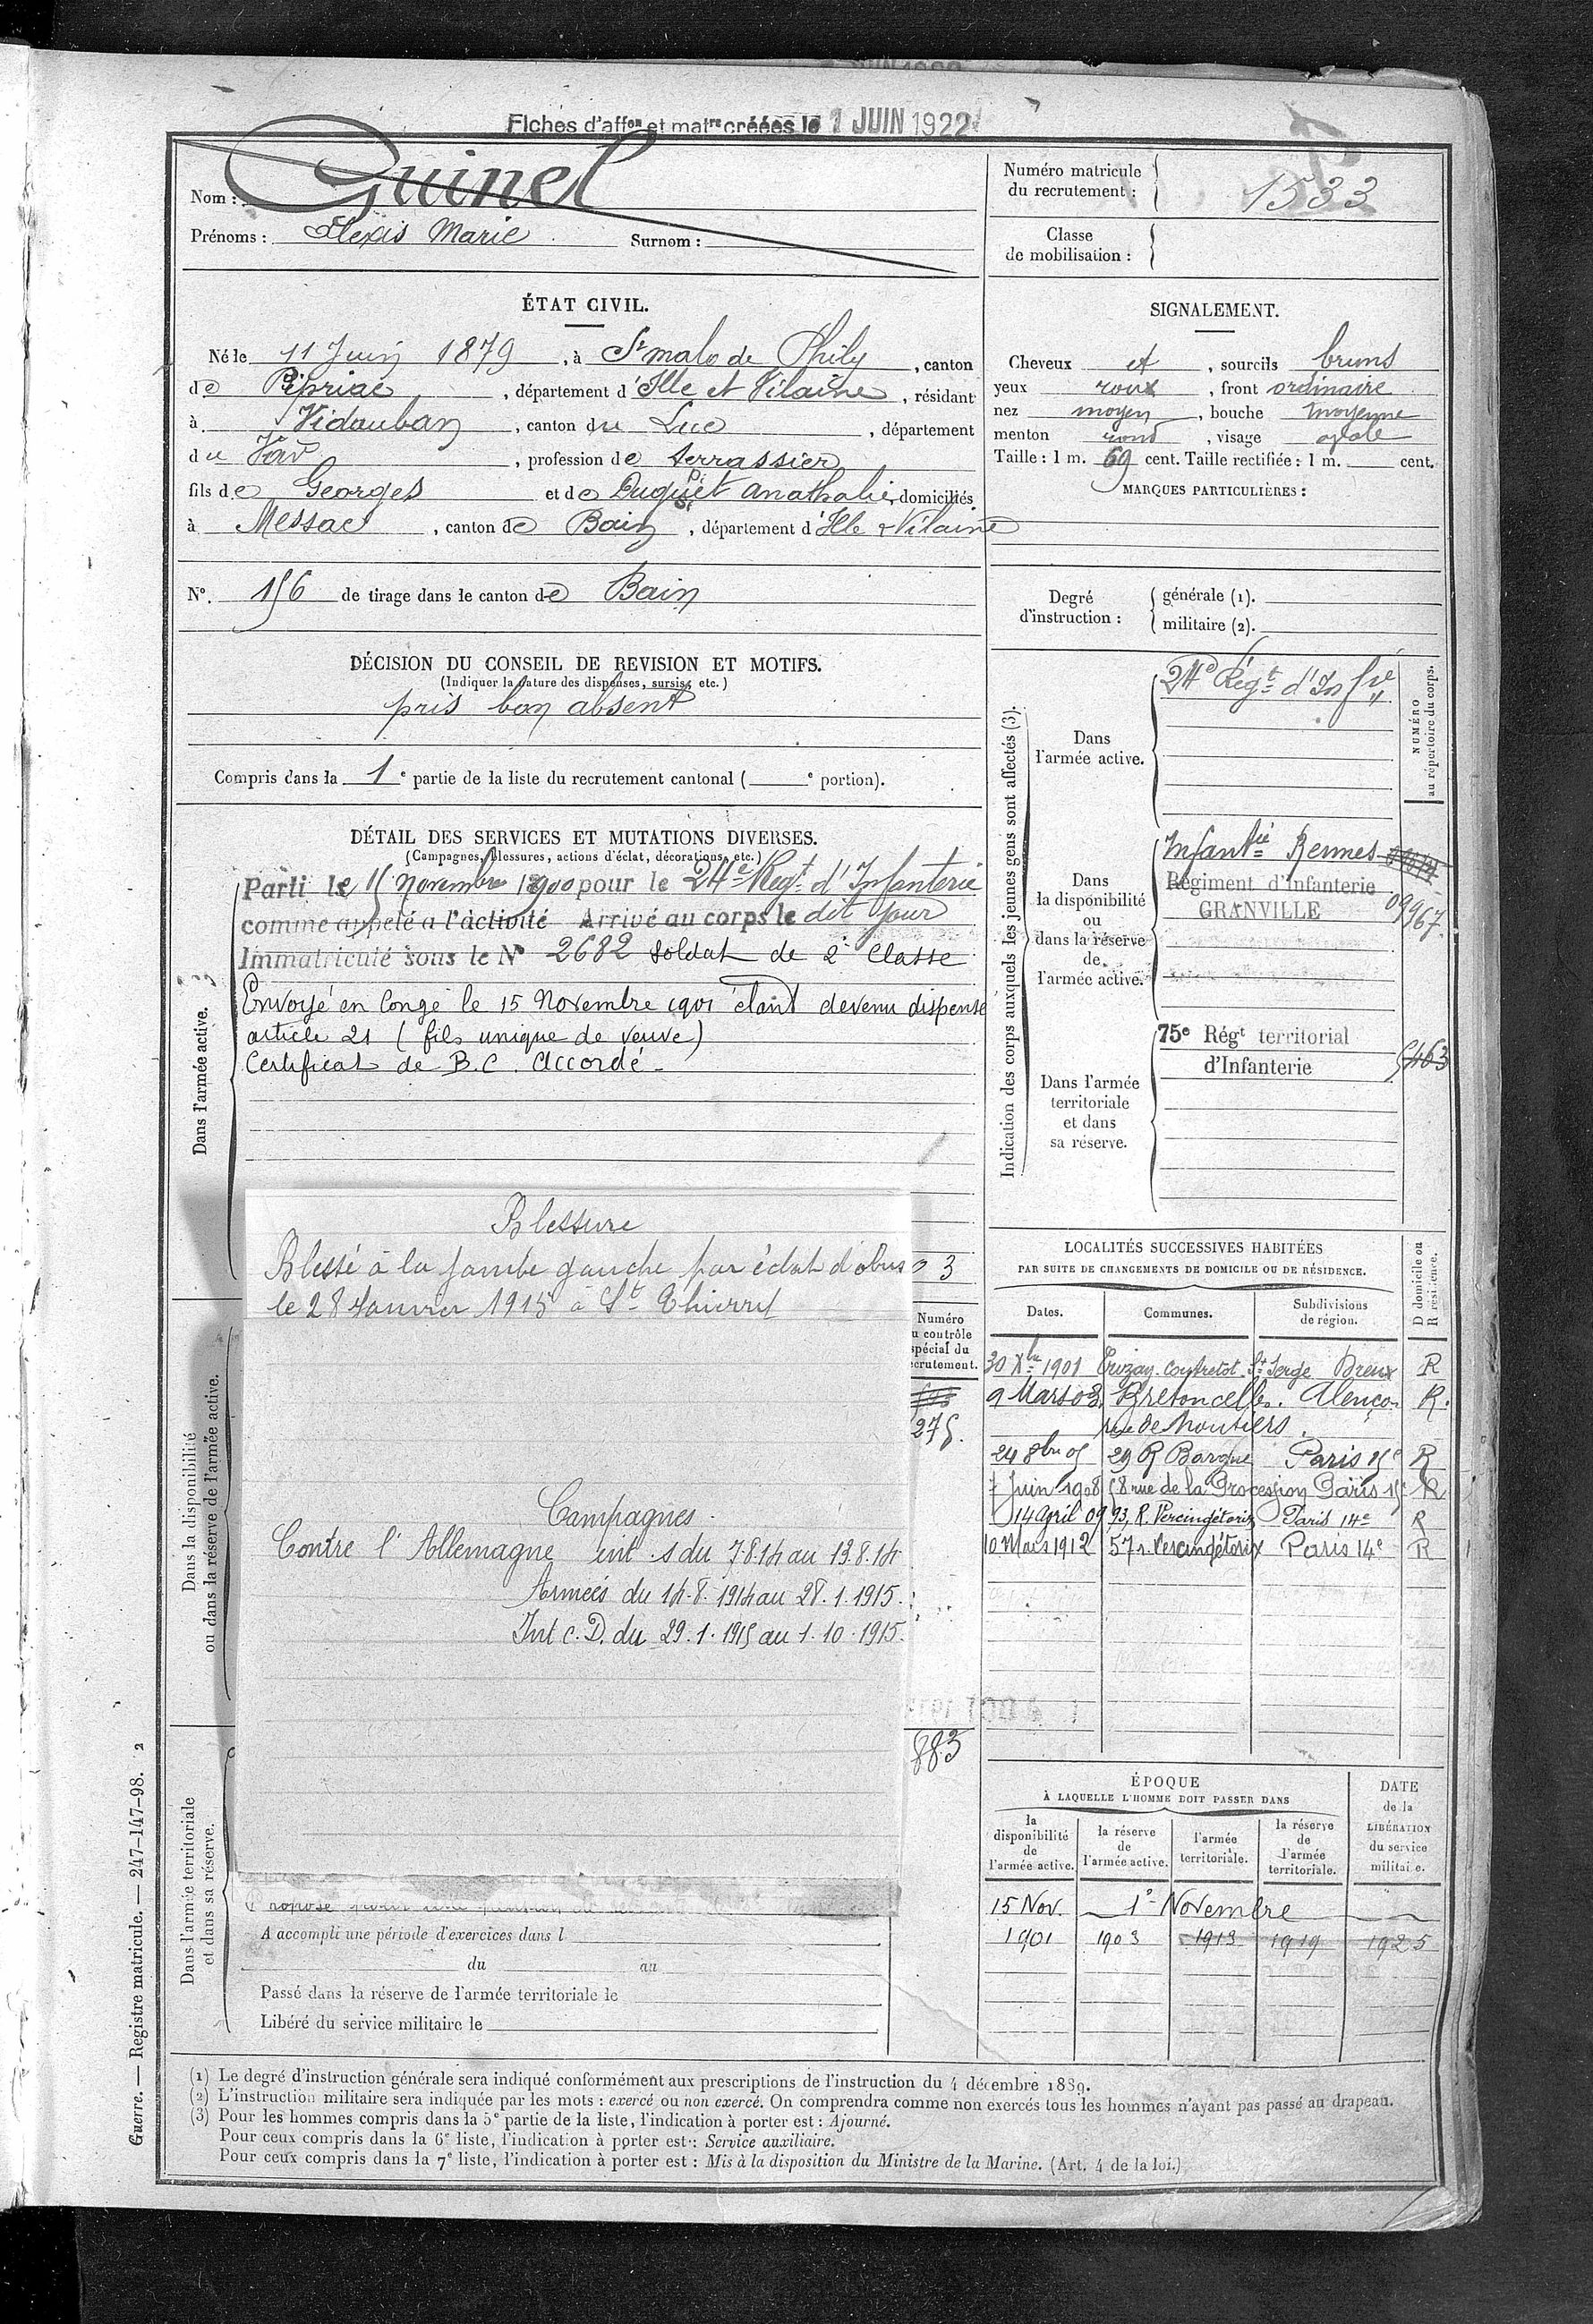 Fiches d'affon et matre créées le 1 JUIN 1922
Nom : Guinel
Prénoms : Alexis Marie Surnom :
Numéro matricule du recrutement : 1533
Classe de mobilisation :
ÉTAT CIVIL.
Né le 11 Juin 1879, à St malo de Phily, canton
de Pipriac, département d'Ille et Vilaine, résidant
à Vidauban, canton du Luc, département
du Var, profession de terrassier
fils de Georges et de anathalie, domiciliés
à Messac, canton de Bain, département d'Ille & Vilaine
No. 156 de tirage dans le canton de Bain
SIGNALEMENT.
Cheveux et, sourcils bruns
yeux roux, front ordinaire
nez moyen, bouche moyenne
menton rond, visage ovale
Taille : 1 m. 69 cent. Taille rectifiée : 1 m. cent.
MARQUES PARTICULIÈRES :
Degré d'instruction : générale (1).
militaire (2).
DÉCISION DU CONSEIL DE REVISION ET MOTIFS.
(Indiquer la nature des dispenses, sursis, etc.)
pris bon absent
Compris dans la 1e partie de la liste du recrutement cantonal ( e portion).
DÉTAIL DES SERVICES ET MUTATIONS DIVERSES.
(Campagnes, blessures, actions d'éclat, décorations, etc.)
Dans l'armée active.
Parti le 15 Novembre 1900 pour le 24e Regt d'Infanterie
comme appelé a l'activité Arrivé au corps le dit jour
Immatriculé sous le No 2682 soldat de 2e Classe
Envoyé en congé le 15 Novembre 1901 étant devenu dispensé
article 21 (fils unique de veuve)
Certificat de B.C. Accordé.
Blessure
Blessé à la jambe gauche par éclat d'obus
le 28 Janvier 1915 à St Thierry
3
Numéro
u contrôle
spécial du
ecrutement.
275.
Campagnes.
Contre l'Allemagne int .s du 7.8.14 au 13.8.14
Armées du 14.8.1914 au 28.1.1915.
Int C.D. du 29.1.1915 au 1.10.1915.
883
Dans la disponibilité
ou dans la réserve de l'armée active.
Dans l'armée territoriale
et dans sa réserve.
A accompli une période d'exercices dans l
du au
Passé dans la réserve de l'armée territoriale le
Libéré du service militaire le
Indication des corps auxquels les jeunes gens sont affectés (3).
NUMÉRO
au répertoire du corps.
Dans l'armée active.
24e Régt d'Infie
Dans la disponibilité ou dans la réserve de l'armée active.
Infantie Rennes
Régiment d'Infanterie
GRANVILLE 09967.
Dans l'armée territoriale et dans sa réserve.
75e Régt territorial
d'Infanterie 5463
LOCALITÉS SUCCESSIVES HABITÉES
PAR SUITE DE CHANGEMENTS DE DOMICILE OU DE RÉSIDENCE.
Dates. Communes. Subdivisions de région. D domicile ou R résidence.
30 Xbre 1901 Dreux R
9 Mars 03 Bretoncelles. Alençon R.
rue de Moutiers.
24 8bre 05 29 R Bargue Paris 15e R
7 Juin 1908 58 rue de la Procession Paris 15e R
14 April 09 93, R. Vercingétorix Paris 14e R
10 Mars 1912 57 r. Vercingétorix Paris 14e R
ÉPOQUE
À LAQUELLE L'HOMME DOIT PASSER DANS
la disponibilité de l'armée active. la réserve de l'armée active. l'armée territoriale. la réserve de l'armée territoriale. DATE de la LIBÉRATION du service militaire.
15 Nov. 1er Novembre
1901 1903 1913 1919 1925
(1) Le degré d'instruction générale sera indiqué conformément aux prescriptions de l'instruction du 4 décembre 1889.
(2) L'instruction militaire sera indiquée par les mots : exercé ou non exercé. On comprendra comme non exercés tous les hommes n'ayant pas passé au drapeau.
(3) Pour les hommes compris dans la 5e partie de la liste, l'indication à porter est : Ajourné.
Pour ceux compris dans la 6e liste, l'indication à porter est : Service auxiliaire.
Pour ceux compris dans la 7e liste, l'indication à porter est : Mis à la disposition du Ministre de la Marine. (Art. 4 de la loi.)
Guerre. — Registre matricule. — 247-147-98. 2